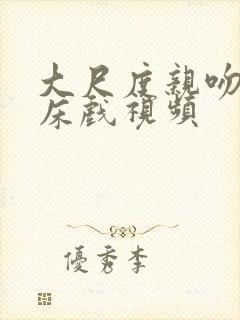 大尺度親吻
床戲視頻
優秀李